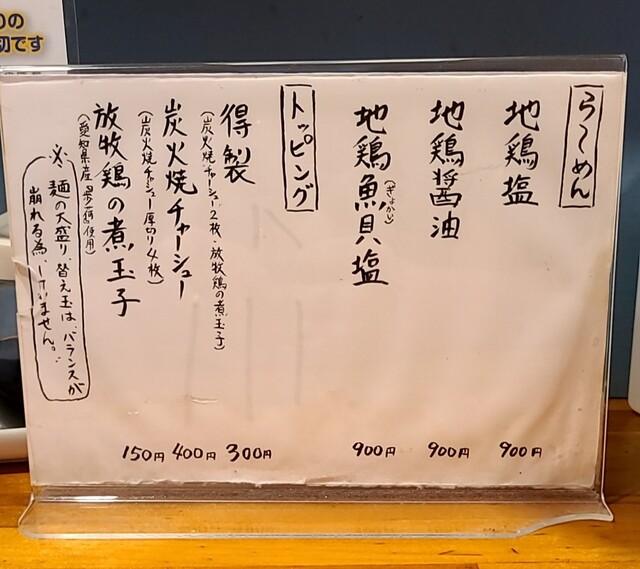 らーめん
地鶏塩 900円
地鶏醤油 900円
地鶏魚貝塩 900円
(ぎょかい)
トッピング
得製 300円
(炭火焼チャーシュー2枚・放牧鶏の煮玉子)
炭火焼チャーシュー 400円
(炭火焼チャーシュー厚切り4枚)
放牧鶏の煮玉子 150円
※麺の大盛り、替え玉は、バランスが
崩れる為、していません。
の
切です